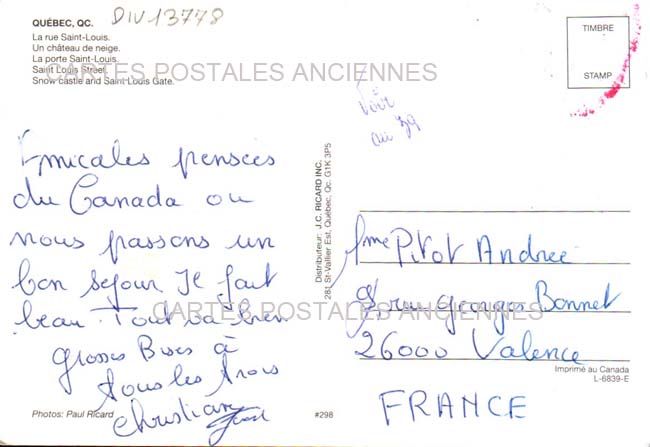 QUÉBEC, QC.
La rue Saint-Louis.
Un château de neige.
La porte Saint-Louis.
Saint Louis Street.
Snow castle and Saint-Louis Gate.
DIV13778
CARTES POSTALES ANCIENNES
TIMBRE
STAMP
Voir
au 39
Amicales pensées
du Canada ou
nous passons un
bon sejour Il fait
beau. Tout va bien
grosses Bises à
tous les trois
Christian
Distributeur: J.C. RICARD INC.
281 St-Vallier Est, Québec, Qc. G1K 3P5
Mme Pitot Andrée
8, rue Georges Bonnet
CARTES POSTALES ANCIENNES
26000 Valence
FRANCE
Imprimé au Canada
L-6839-E
Photos: Paul Ricard
#298